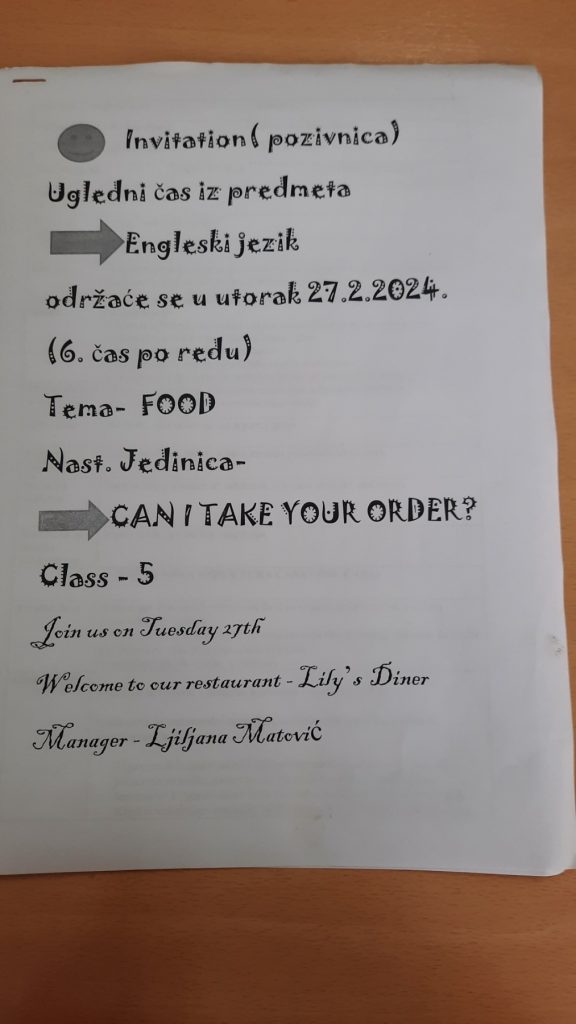 Invitation( pozivnica)
Ugledni čas iz predmeta
Engleski jezik
održaće se u utorak 27.2.2024.
(6. čas po redu)
Tema- FOOD
Nast. Jedinica-
CAN I TAKE YOUR ORDER?
Class - 5
Join us on Tuesday 27th
Welcome to our restaurant - Lily's Diner
Manager - Ljiljana Matović